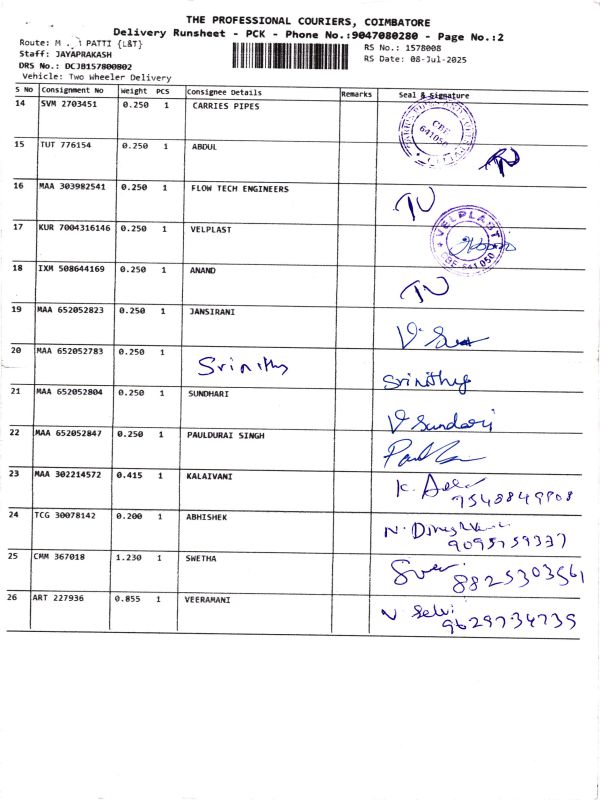 THE PROFESSIONAL COURIERS, COIMBATORE
Delivery Runsheet - PCK - Phone No.:9047080280 - Page No.:2
Route: M PATTI {L&T}
RS No.: 1578008
Staff: JAYAPRAKASH
RS Date: 08-Jul-2025
DRS No.: DCJB157800802
Vehicle: Two Wheeler Delivery
S No Consignment No Weight PCS Consignee Details Remarks Seal & Signature
14 SVM 2703451 0.250 1 CARRIES PIPES
CBE
641050
15 TUT 776154 0.250 1 ABDUL
16 MAA 303982541 0.250 1 FLOW TECH ENGINEERS
17 KUR 7004316146 0.250 1 VELPLAST
VELPLAST
CBE 641 050
18 IXM 508644169 0.250 1 ANAND
19 MAA 652052823 0.250 1 JANSIRANI
20 MAA 652052783 0.250 1 Srinithy Srinithy
21 MAA 652052804 0.250 1 SUNDHARI V Sundari
22 MAA 652052847 0.250 1 PAULDURAI SINGH
23 MAA 302214572 0.415 1 KALAIVANI K.
24 TCG 30078142 0.200 1 ABHISHEK N.
9095759337
25 CMM 367018 1.230 1 SWETHA
8825303561
26 ART 227936 0.855 1 VEERAMANI N Selvi
9629734739